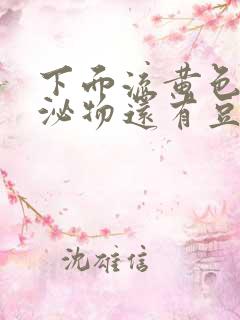 下而流黄色
泌物還有豆
沈雄信